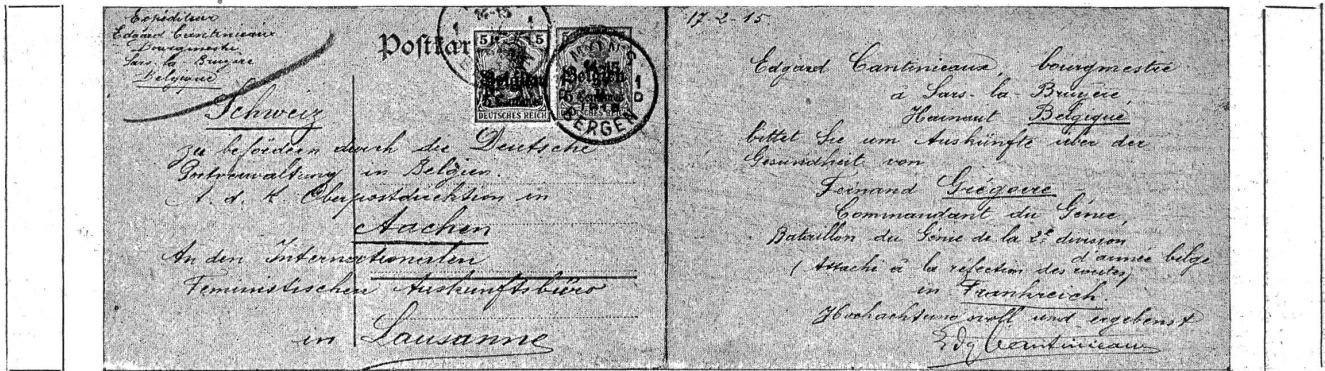 Expéditeur
Edgard Cantinieaux
Bourgmestre
Sars la Bruyère
Belgique
Postkar
14-15
5 5
Belgien
5 Centimes
DEUTSCHES REICH
Belgien
5 Centimes
DEUTSCHES REICH
MONS
1 1
D
BERGEN
Schweiz
zu befördern durch die Deutsche
Postverwaltung in Belgien.
A. d. K. Oberpostdirektion in
Aachen
An den Internationalen
Feministischen Auskunftsbüro
in Lausanne
17-2-15
Edgard Cantinieaux, bourgmestre
à Sars-la-Bruyère,
Hainaut Belgique
bittet Sie um Auskünfte über der
Gesundheit von
Fernand Grégoire,
Commandant du Génie,
Bataillon du Génie de la 2e division
d'armée belge
(Attaché à la réfection des routes)
in Frankreich.
Hochachtungsvoll und ergebenst
Edg Cantinieaux